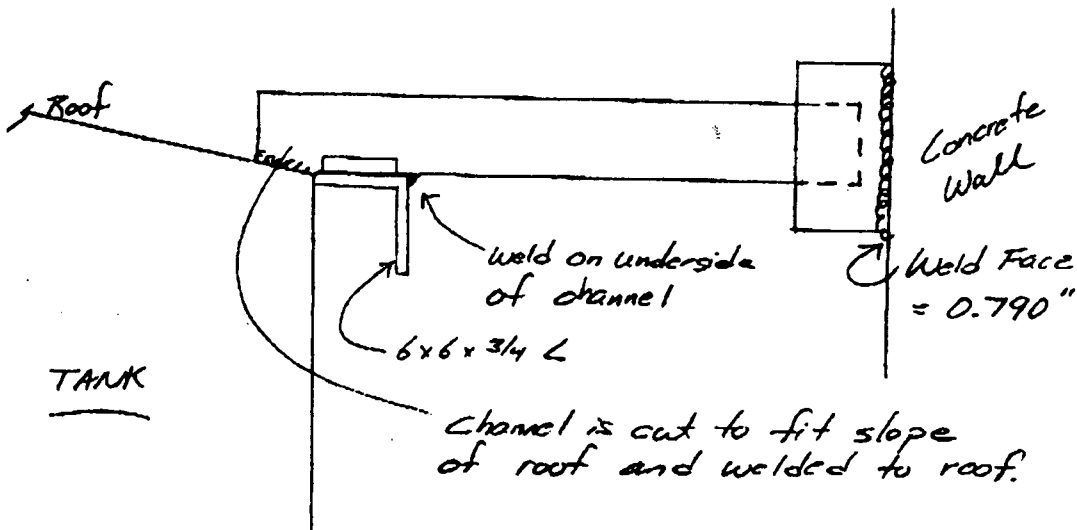 Roof
Concrete
Wall
weld on underside
of channel
Weld Face
= 0.790"
6x6x3/4 L
TANK
Channel is cut to fit slope
of roof and welded to roof.